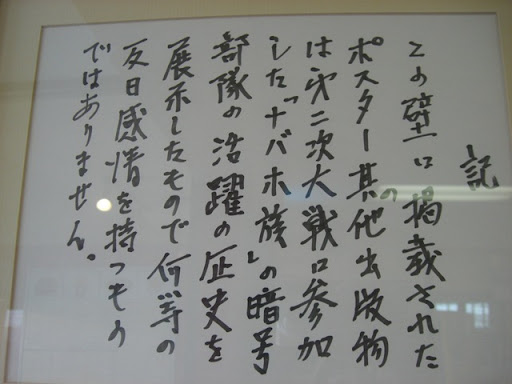 記
この壁に掲載された
ポスター其の他出版物
は㐧二次大戦に参加
した「ナバホ族」の暗号
部隊の活躍の歴史を
展示したもので何等の
反日感情を持つもの
ではありません。